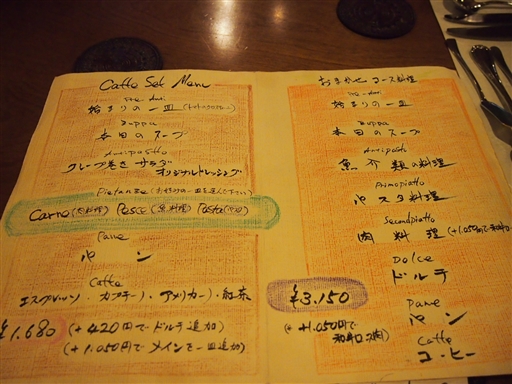 Caffe Set Menu
始まりの一皿
Zuppa
本日のスープ
Antipasto
クレープ巻き サラダ
オリジナルドレッシング
Pietanze (お好みの一皿を選んで下さい)
Carne (肉料理) Pesce (魚料理) Pasta (パスタ)
Pane
パン
Caffe
エスプレッソ・カプチーノ・アメリカーノ・紅茶
¥1.680
(+420円でドルチ追加)
(+1.050円でメインを一皿追加)
おまかせ コース料理
始まりの一皿
Zuppa
本日のスープ
Antipasto
魚介類の料理
Primopiatto
パスタ料理
Secondpiatto
肉料理
Dolce
ドルチ
Pane
パン
Caffe
コーヒー
¥3.150
(+1.050円で